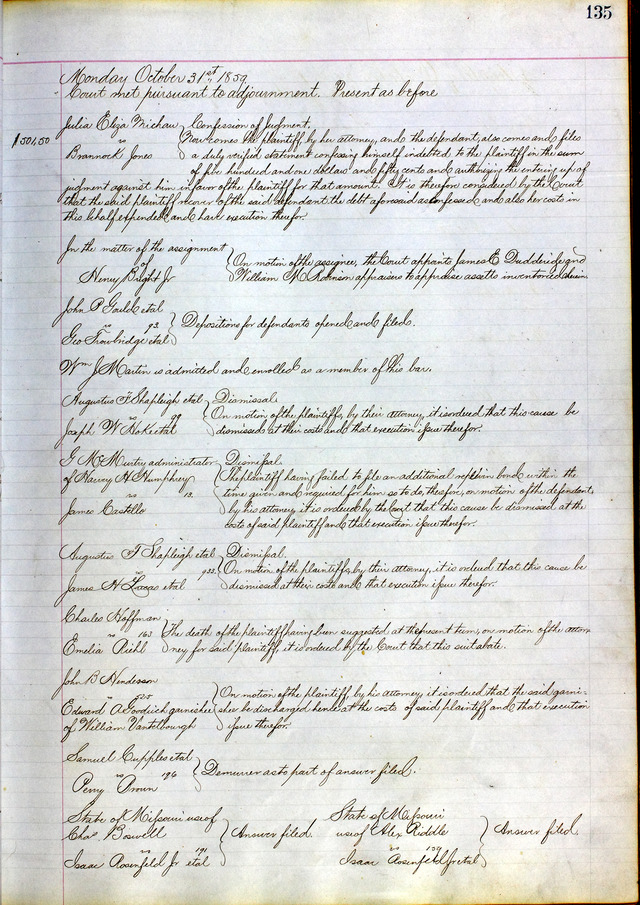 135
Monday October 31st 1859
Court met pursuant to adjournment. Present as before
Julia Eliza Michau Confession of Judgment.
$501,50 vs Now comes the plaintiff, by her attorney, and the defendant, also comes and files
Brannock Jones a duly verified statement confessing himself indebted to the plaintiff in the sum
of five hundred and one dollars and fifty cents and authorizing the entering up of
judgment against him in favor of the plaintiff for that amount. It is therefore considered by the Court
that the said plaintiff recover of the said defendant the debt aforesaid as confessed and also her costs in
this behalf expended and have execution therefor.
In the matter of the assignment
of On motion of the assignee, the Court appoints James E and
Henry Bright Jr William M Robinson appraisers to appraise assetts inventoried therein
John P Gould etal
vs 93. Depositions for defendants opened and filed.
Geo Trowbridge etal
Wm J Martin is admitted and enrolled as a member of this bar.
Augustus F Shapleigh etal Dismissal.
vs 99 On motion of the plaintiffs, by their attorney, it is ordered that this cause be
Joseph W etal dismissed at their costs and that execution issue therefor.
G McMurtry administrator Dismissal.
of Harvey H Humphrey The plaintiff having failed to file an additional replevin bond within the
vs 13. time given and required for him so to do, therefor, on motion of the defendant,
James Castello by his attorney it is ordered by the Court that this cause be dismissed at the
costs of said plaintiff and that execution issue therefor.
Augustus F Shapleigh etal Dismissal.
vs 933. On motion of the plaintiffs, by their attorney, it is ordered that this cause be
James H Lucas etal dismissed at their costs and that execution issue therefor.
Charles Hoffman
vs 163 The death of the plaintiff having been suggested at the present term, on motion of the attor-
Emelia Riehl ney for said plaintiff, it is ordered by the Court that this suit abate.
John B Henderson
vs On motion of the plaintiff by his attorney, it is ordered that the said garni-
Edward A garnishee shee be discharged hence at the costs of said plaintiff and that execution
of William Vantilburgh issue therefor.
Samuel Cupples etal
vs 196 Demurrer as to part of answer filed.
Perry Orown
State of Missouri use of State of Missouri
Chas Boswell Answer filed. use of Alex Riddle Answer filed.
vs 191 vs 189
Isaac Rosenfeld Jr etal Isaac Rosenfeld Jr etal